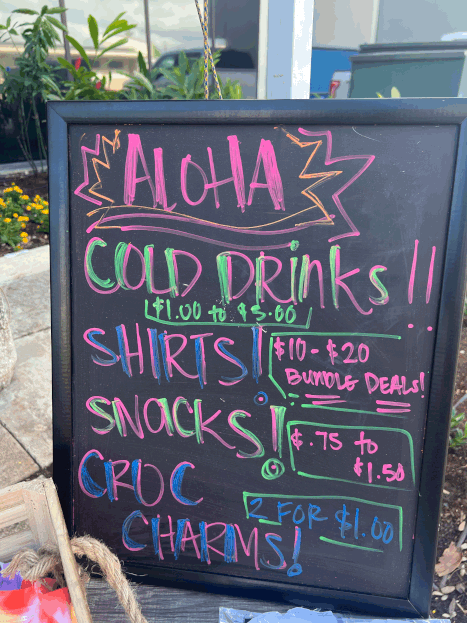 ALOHA
COLD DRINKS!!
$1.00 to $3.00
SHIRTS!
$10 - $20
BUNDLE DEALS!
SNACKS!
$.75 to
$1.50
CROC
CHARMS!
2 FOR $1.00